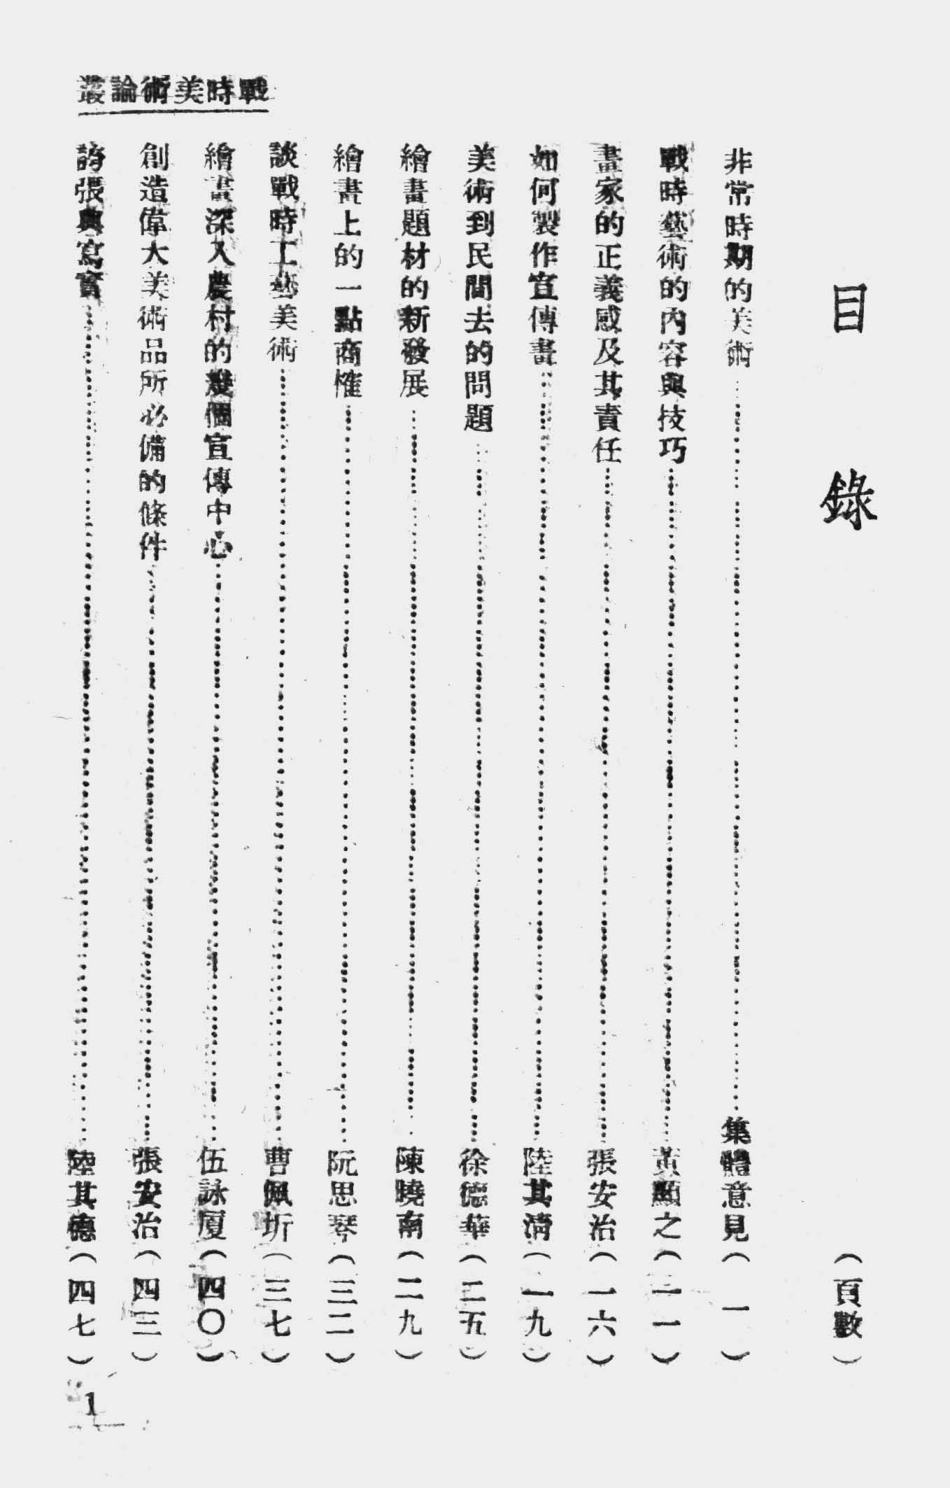 戰時美術論叢
目錄
（頁數）
非常時期的美術……集體意見（一）
戰時藝術的內容與技巧……黃顯之（一一）
畫家的正義感及其責任……張安治（一六）
如何製作宣傳畫……陸其清（一九）
美術到民間去的問題……徐德華（二五）
繪畫題材的新發展……陳曉南（二九）
繪畫上的一點商榷……阮思琴（三二）
談戰時工藝美術……曹佩圻（三七）
繪畫深入農村的幾個宣傳中心……伍詠厦（四〇）
創造偉大美術品所必備的條件……張安治（四三）
誇張與寫實……陸其德（四七）
1